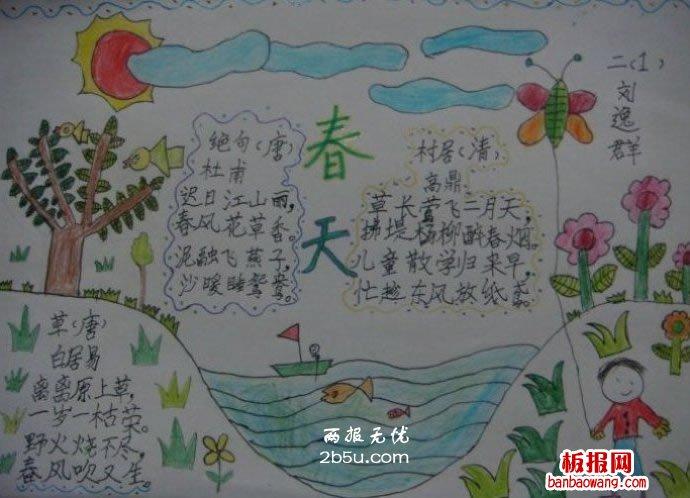 春
天
二(1)
刘逸群
绝句(唐)
杜甫
迟日江山丽,
春风花草香。
泥融飞燕子,
沙暖睡鸳鸯。
村居(清)
高鼎
草长莺飞二月天,
拂堤杨柳醉春烟。
儿童散学归来早,
忙趁东风放纸鸢。
草(唐)
白居易
离离原上草,
一岁一枯荣。
野火烧不尽,
春风吹又生。
两报无忧
2b5u.com
板报网
banbaowang.com